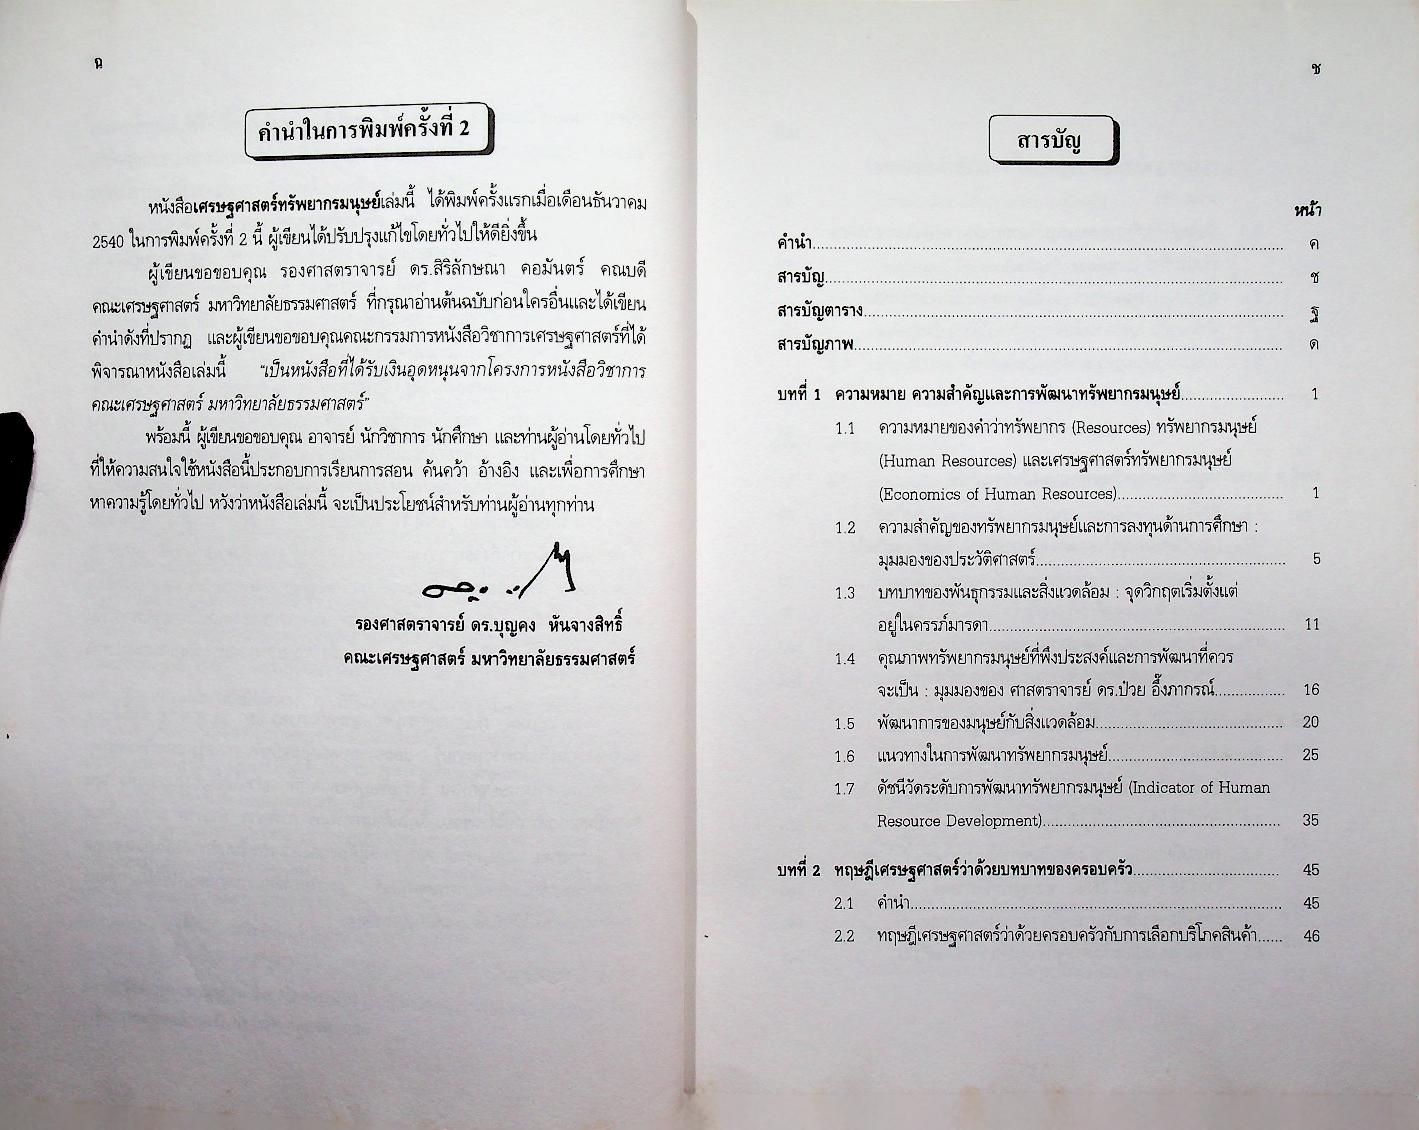 ฉ
คำนำในการพิมพ์ครั้งที่ 2
หนังสือเศรษฐศาสตร์ทรัพยากรมนุษย์เล่มนี้ ได้พิมพ์ครั้งแรกเมื่อเดือนธันวาคม
2540 ในการพิมพ์ครั้งที่ 2 นี้ ผู้เขียนได้ปรับปรุงแก้ไขโดยทั่วไปให้ดียิ่งขึ้น
ผู้เขียนขอขอบคุณ รองศาสตราจารย์ ดร.สิริลักษณา คอมันตร์ คณบดี
คณะเศรษฐศาสตร์ มหาวิทยาลัยธรรมศาสตร์ ที่กรุณาอ่านต้นฉบับก่อนใครอื่นและได้เขียน
คำนำดังที่ปรากฏ และผู้เขียนขอขอบคุณคณะกรรมการหนังสือวิชาการเศรษฐศาสตร์ที่ได้
พิจารณาหนังสือเล่มนี้ "เป็นหนังสือที่ได้รับเงินอุดหนุนจากโครงการหนังสือวิชาการ
คณะเศรษฐศาสตร์ มหาวิทยาลัยธรรมศาสตร์"
พร้อมนี้ ผู้เขียนขอขอบคุณ อาจารย์ นักวิชาการ นักศึกษา และท่านผู้อ่านโดยทั่วไป
ที่ให้ความสนใจใช้หนังสือนี้ประกอบการเรียนการสอน ค้นคว้า อ้างอิง และเพื่อการศึกษา
หาความรู้โดยทั่วไป หวังว่าหนังสือเล่มนี้ จะเป็นประโยชน์สำหรับท่านผู้อ่านทุกท่าน
รองศาสตราจารย์ ดร.บุญคง หันจางสิทธิ์
คณะเศรษฐศาสตร์ มหาวิทยาลัยธรรมศาสตร์
ช
สารบัญ
หน้า
คำนำ.......... ค
สารบัญ.......... ช
สารบัญตาราง.......... ฐ
สารบัญภาพ.......... ด
บทที่ 1 ความหมาย ความสำคัญและการพัฒนาทรัพยากรมนุษย์.......... 1
1.1 ความหมายของคำว่าทรัพยากร (Resources) ทรัพยากรมนุษย์
(Human Resources) และเศรษฐศาสตร์ทรัพยากรมนุษย์
(Economics of Human Resources).......... 1
1.2 ความสำคัญของทรัพยากรมนุษย์และการลงทุนด้านการศึกษา :
มุมมองของประวัติศาสตร์.......... 5
1.3 บทบาทของพันธุกรรมและสิ่งแวดล้อม : จุดวิกฤตเริ่มตั้งแต่
อยู่ในครรภ์มารดา.......... 11
1.4 คุณภาพทรัพยากรมนุษย์ที่พึงประสงค์และการพัฒนาที่ควร
จะเป็น : มุมมองของ ศาสตราจารย์ ดร.ป๋วย อึ๊งภากรณ์.......... 16
1.5 พัฒนาการของมนุษย์กับสิ่งแวดล้อม.......... 20
1.6 แนวทางในการพัฒนาทรัพยากรมนุษย์.......... 25
1.7 ดัชนีวัดระดับการพัฒนาทรัพยากรมนุษย์ (Indicator of Human
Resource Development).......... 35
บทที่ 2 ทฤษฎีเศรษฐศาสตร์ว่าด้วยบทบาทของครอบครัว.......... 45
2.1 คำนำ.......... 45
2.2 ทฤษฎีเศรษฐศาสตร์ว่าด้วยครอบครัวกับการเลือกบริโภคสินค้า...... 46